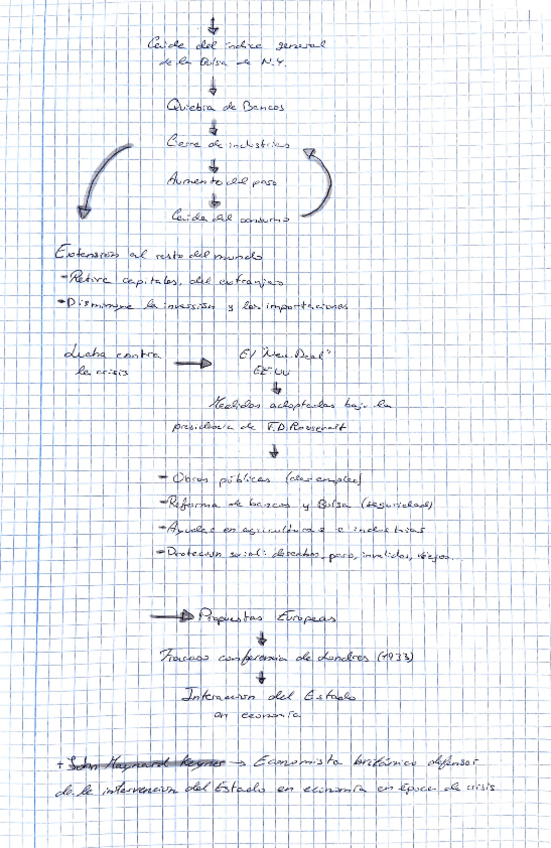 Caida del indice general
de la Bolsa de N.Y.
Quiebra de Bancos
Cierre de industrias
Aumento del paro
Caida del consumo
Extension al resto del mundo
- Retira capitales, del extranjero
- Disminuye la inversión y las importaciones
Lucha contra
la crisis
El "New Deal"
EE·UU
Medidas adoptadas bajo la
presidencia de F.D. Roosevelt
- Obras públicas (desempleo)
- Reforma de bancos y Bolsa (seguridad)
- Ayudas en agricultura e industrias
- Proteccion social: paro, invalidos, viejos.
Propuestas Europeas
Fracaso conferencia de Londres (1933)
del Estado
en economia
+ John Maynard Keynes → Economista británico defensor
de la intervencion del Estado en economia en época de crisis